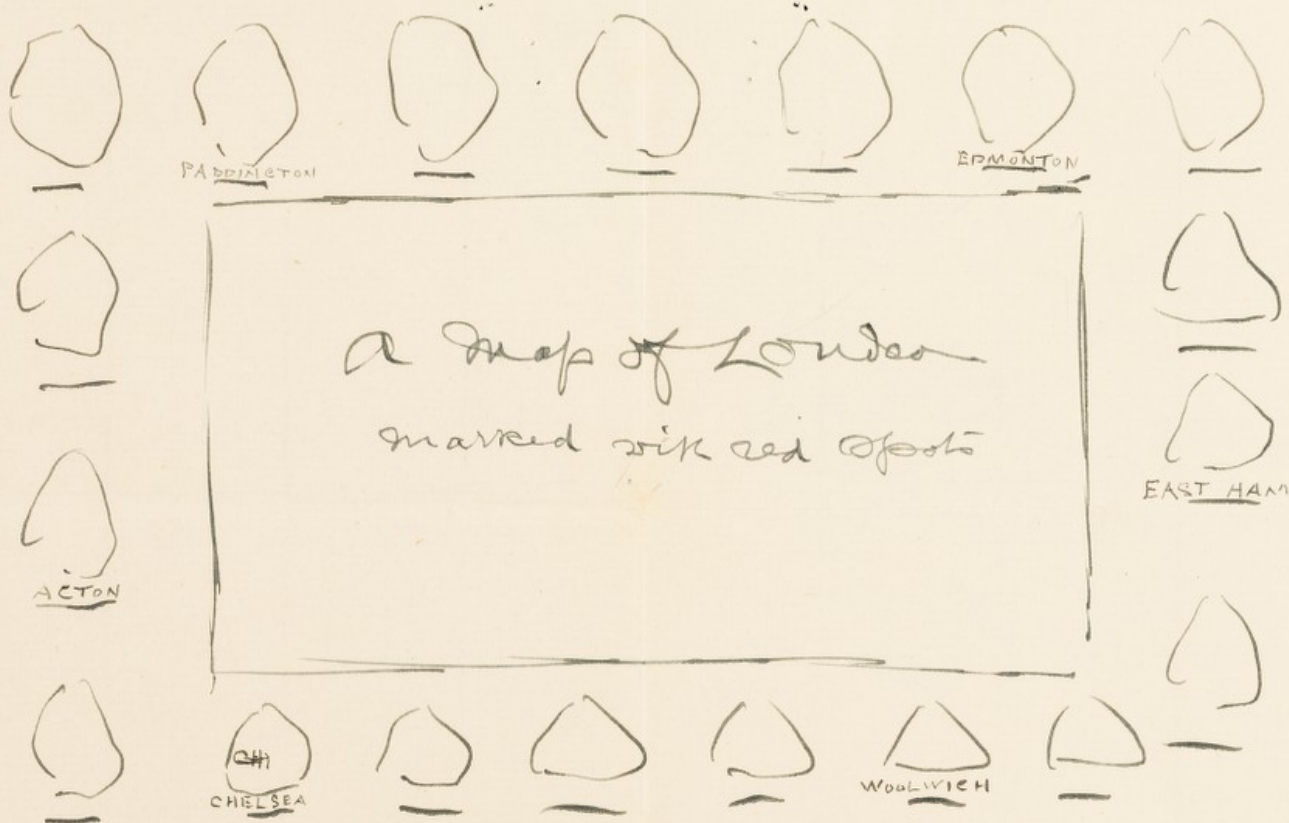 PADDINGTON
EDMONTON
a map of London
marked with red spots
EAST HAM
ACTON
CH
CHELSEA
WOOLWICH